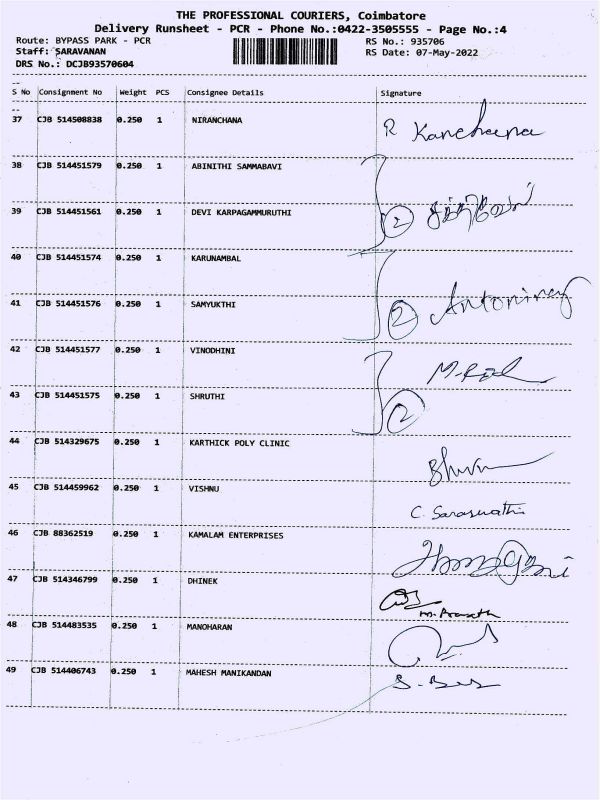 THE PROFESSIONAL COURIERS, Coimbatore
Delivery Runsheet - PCR - Phone No.:0422-3505555 - Page No.:4
Route: BYPASS PARK - PCR RS No.: 935706
Staff: SARAVANAN RS Date: 07-May-2022
DRS No.: DCJB93570604
S No Consignment No Weight PCS Consignee Details Signature
37 CJB 514508838 0.250 1 NIRANCHANA R Kanchana
38 CJB 514451579 0.250 1 ABINITHI SAMMABAVI
39 CJB 514451561 0.250 1 DEVI KARPAGAMMURUTHI 2
40 CJB 514451574 0.250 1 KARUNAMBAL
41 CJB 514451576 0.250 1 SAMYUKTHI 2 Antoniraj
42 CJB 514451577 0.250 1 VINODHINI
43 CJB 514451575 0.250 1 SHRUTHI 2
44 CJB 514329675 0.250 1 KARTHICK POLY CLINIC
45 CJB 514459962 0.250 1 VISHNU C. Saraswathi
46 CJB 88362519 0.250 1 KAMALAM ENTERPRISES
47 CJB 514346799 0.250 1 DHINEK
48 CJB 514483535 0.250 1 MANOHARAN
49 CJB 514406743 0.250 1 MAHESH MANIKANDAN